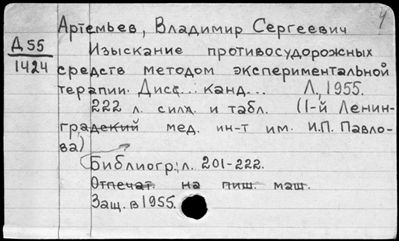 Артемьев, Владимир Сергеевич
Д 55
1424
Изыскание противосудорожных
средств методом экспериментальной
терапии. Дисс... канд... Л., 1955.
222 л. с илл. и табл. (1-й Ленин-
градский мед. ин-т им. И.П. Павло-
ва)
Библиогр.: л. 201-222.
Отпечат. на пиш. маш.
Защ. в 1955.